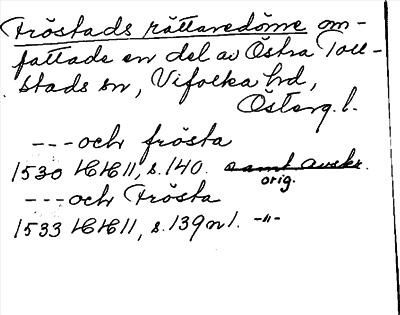 Fröstads rättaredöme om-
fattade en del av Östra Toll-
stads sn, Vifolka hd,
Österg. l.
---och frösta
1530 HH 11, s. 140. samt avskr.
orig.
---och Frösta
1533 HH 11, s. 139 n 1. -"-